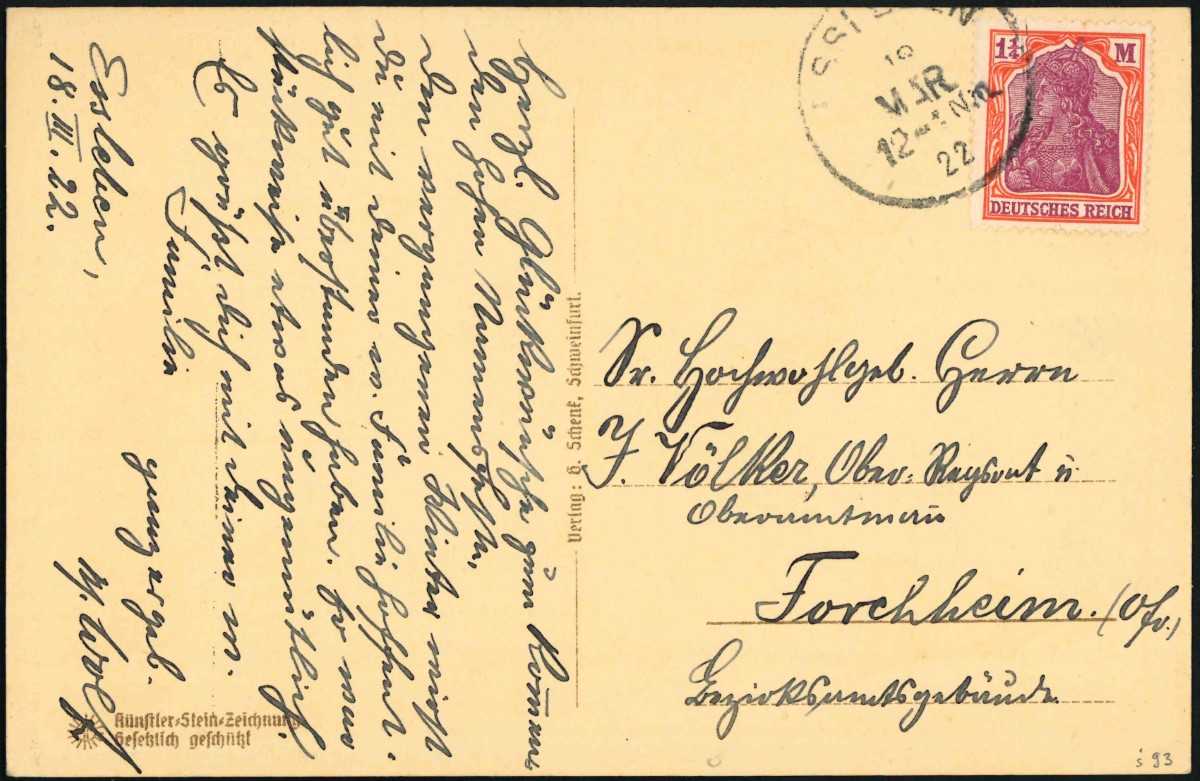 Essleben,
18. III. 22.
Herzl. Glückwünsche zum Kommen-
den hohen Namensfeste,
den vergangenen Winter wirst
du mit deiner w. Familie hoffent-
lich gut überstanden haben. Er war
stückweise etwas ungemütlich.
Es grüßt dich mit deiner w.
Familie
ganz ergeb.
Wolf
Verlag: H. Schenk, Schweinfurt.
Künstler-Stein-Zeichnung
Gesetzlich geschützt
ESSLEBEN
18
MÄR
12-1 Nm
22
1¼ M
DEUTSCHES REICH
Sr. Hochwohlgeb. Herrn
J. Völker, Ober-Regsrat u
Oberamtmann
Forchheim. (Ofr.)
Bezirksamtsgebäude
s 93